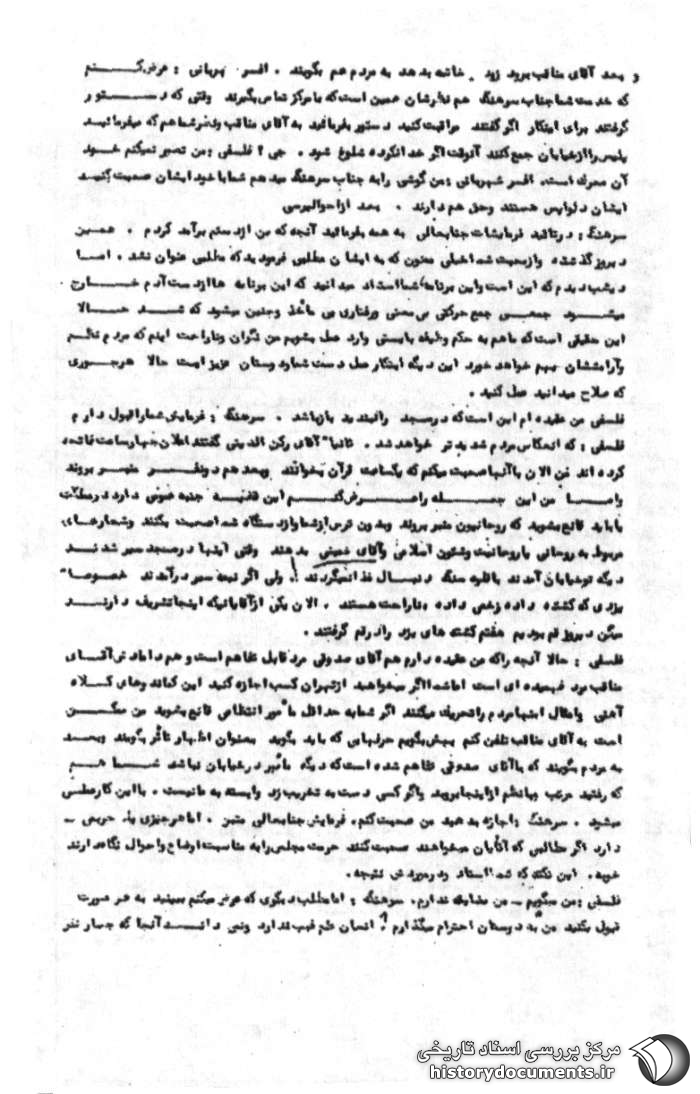 و بعد آقای مناقب برود زود خاتمه بدهد به مردم هم بگویند . افسر شهربانی : عرض کنم
که خدمت شما جناب سرهنگ هم نظرشان همین است که با مرکز تماس بگیرند وقتی که دستور
گرفتند برای ابتکار اگر گفتند مراقبت کنید دستور بفرمائید به آقای مناقب و نفر شما هم که میفرمائید
پلیس را از خیابان جمع کنند آنوقت اگر خدا نکرده شلوغ شود . جی ؟ فلسفی : من تصور نمیکنم خود
آن محرک است، افسر شهربانی : من گوشی را به جناب سرهنگ میدهم شما با خود ایشان صحبت کنید
ایشان دلواپس هستند وحق هم دارند . بعد از احوالپرسی
سرهنگ : در تائید فرمایشات جنابعالی به همه بفرمائید آنچه که من از دستم برآمد کردم . همین
دیروز گذشته و از صحبت شما خیلی ممنون که به ایشان مطلبی فرمودید که مطلبی عنوان نشد . اما
دیشب دیدم که این است و این برنامه شما استاد میدانید که این برنامه ها از دست آدم خارج
میشود جمعی جمع حرکتی بی معنی و رفتاری بی مأخذ و چنین میشود که شد حالا
این حقیقتی است که ما هم به حکم وظیفه بایستی وارد عمل بشویم من نگران و ناراحت اینم که مردم نظم
وآرامششان بهم خواهد خورد این دیگه ابتکار عمل دست شما و دوستان عزیز است حالا هر جوری
که صلاح میدانید عمل کنید .
فلسفی من عقیده ام این است که در مسجد را نبندید باز باشد . سرهنگ : فرمایش شما را قبول دارم
فلسفی : که انعکاس مردم شدیدتر خواهد شد . ثانیا" آقای رکن الدینی گفتند اعلان چهار ساعت فاتحه
کرده اند من الان با آنها صحبت میکنم که یکساعت قرآن بخوانند و بعد هم دو نفر منبر بروند
واما من این جمله را عرض کنم این قضیه جنبه عمومی دارد در مملکت
باید قانع بشوید که روحانیون منبر بروند و بدون ترس از شما و از دستگاه شما صحبت بکنند و شعارهای
مربوط به روحانی یا روحانیت و شئون اسلامی و آقای خمینی بدهند وقتی اینها در مسجد سیر شدند
دیگه تو خیابان آمدند با قلوه سنگ دنبال غذا نمیگردند ! ولی اگر نیمه سیر درآمدند خصوصا"
یزدی که کشته داده زخمی داده و ناراحت هستند . الان یکی از آقایانیکه اینجا تشریف دارند
میگن دیروز قم بودیم هفتم کشته های یزد را در قم گرفتند .
فلسفی : حالا آنچه را که من عقیده دارم هم آقای صدوقی مرد قابل تفاهم است و هم دامادش آقای
مناقب مرد فهمیده ای است اما شما اگر میخواهید از تهران کسب اجازه کنید این کماندوهای کلاه
آهنی وامثال اینها مردم را تحریک میکنند اگر شما به حداقل مأمور انتظامی قانع بشوید من ممکن
است به آقای مناقب تلفن کنم بهش بگویم حرفهایی که باید بگوید بعنوان اظهار تأثر بگویند و بعد
به مردم بگویند که با آقای صدوقی تفاهم شده است که دیگه مأمور در خیابان نباشد شما هم
که رفتید مرتب و با نظم از اینجا بروید و اگر کسی دست به تخریب زد وابسته به ما نیست . با این کار عملی
میشود . سرهنگ : اجازه بدهید من صحبت کنم، فرمایش جنابعالی متین . اما هر چیزی یک حریمی
دارد اگر مطالبی که آقایان میخواهند صحبت کنند حرمت مجلس را به مناسبت اوضاع و احوال نگاه دارند
خوبه . این نکته که شما استاد
فلسفی : من میگویم من مضایقه ندارم، سرهنگ : اما مطلب دیگری که عرض میکنم ببینید به هر صورت
قبول بکنید من به دوستان احترام میگذارم ! انسان علم غیب ندارد ونمی داند آنجا که چهار نفر
مرکز بررسی اسناد تاریخی
historydocuments.ir